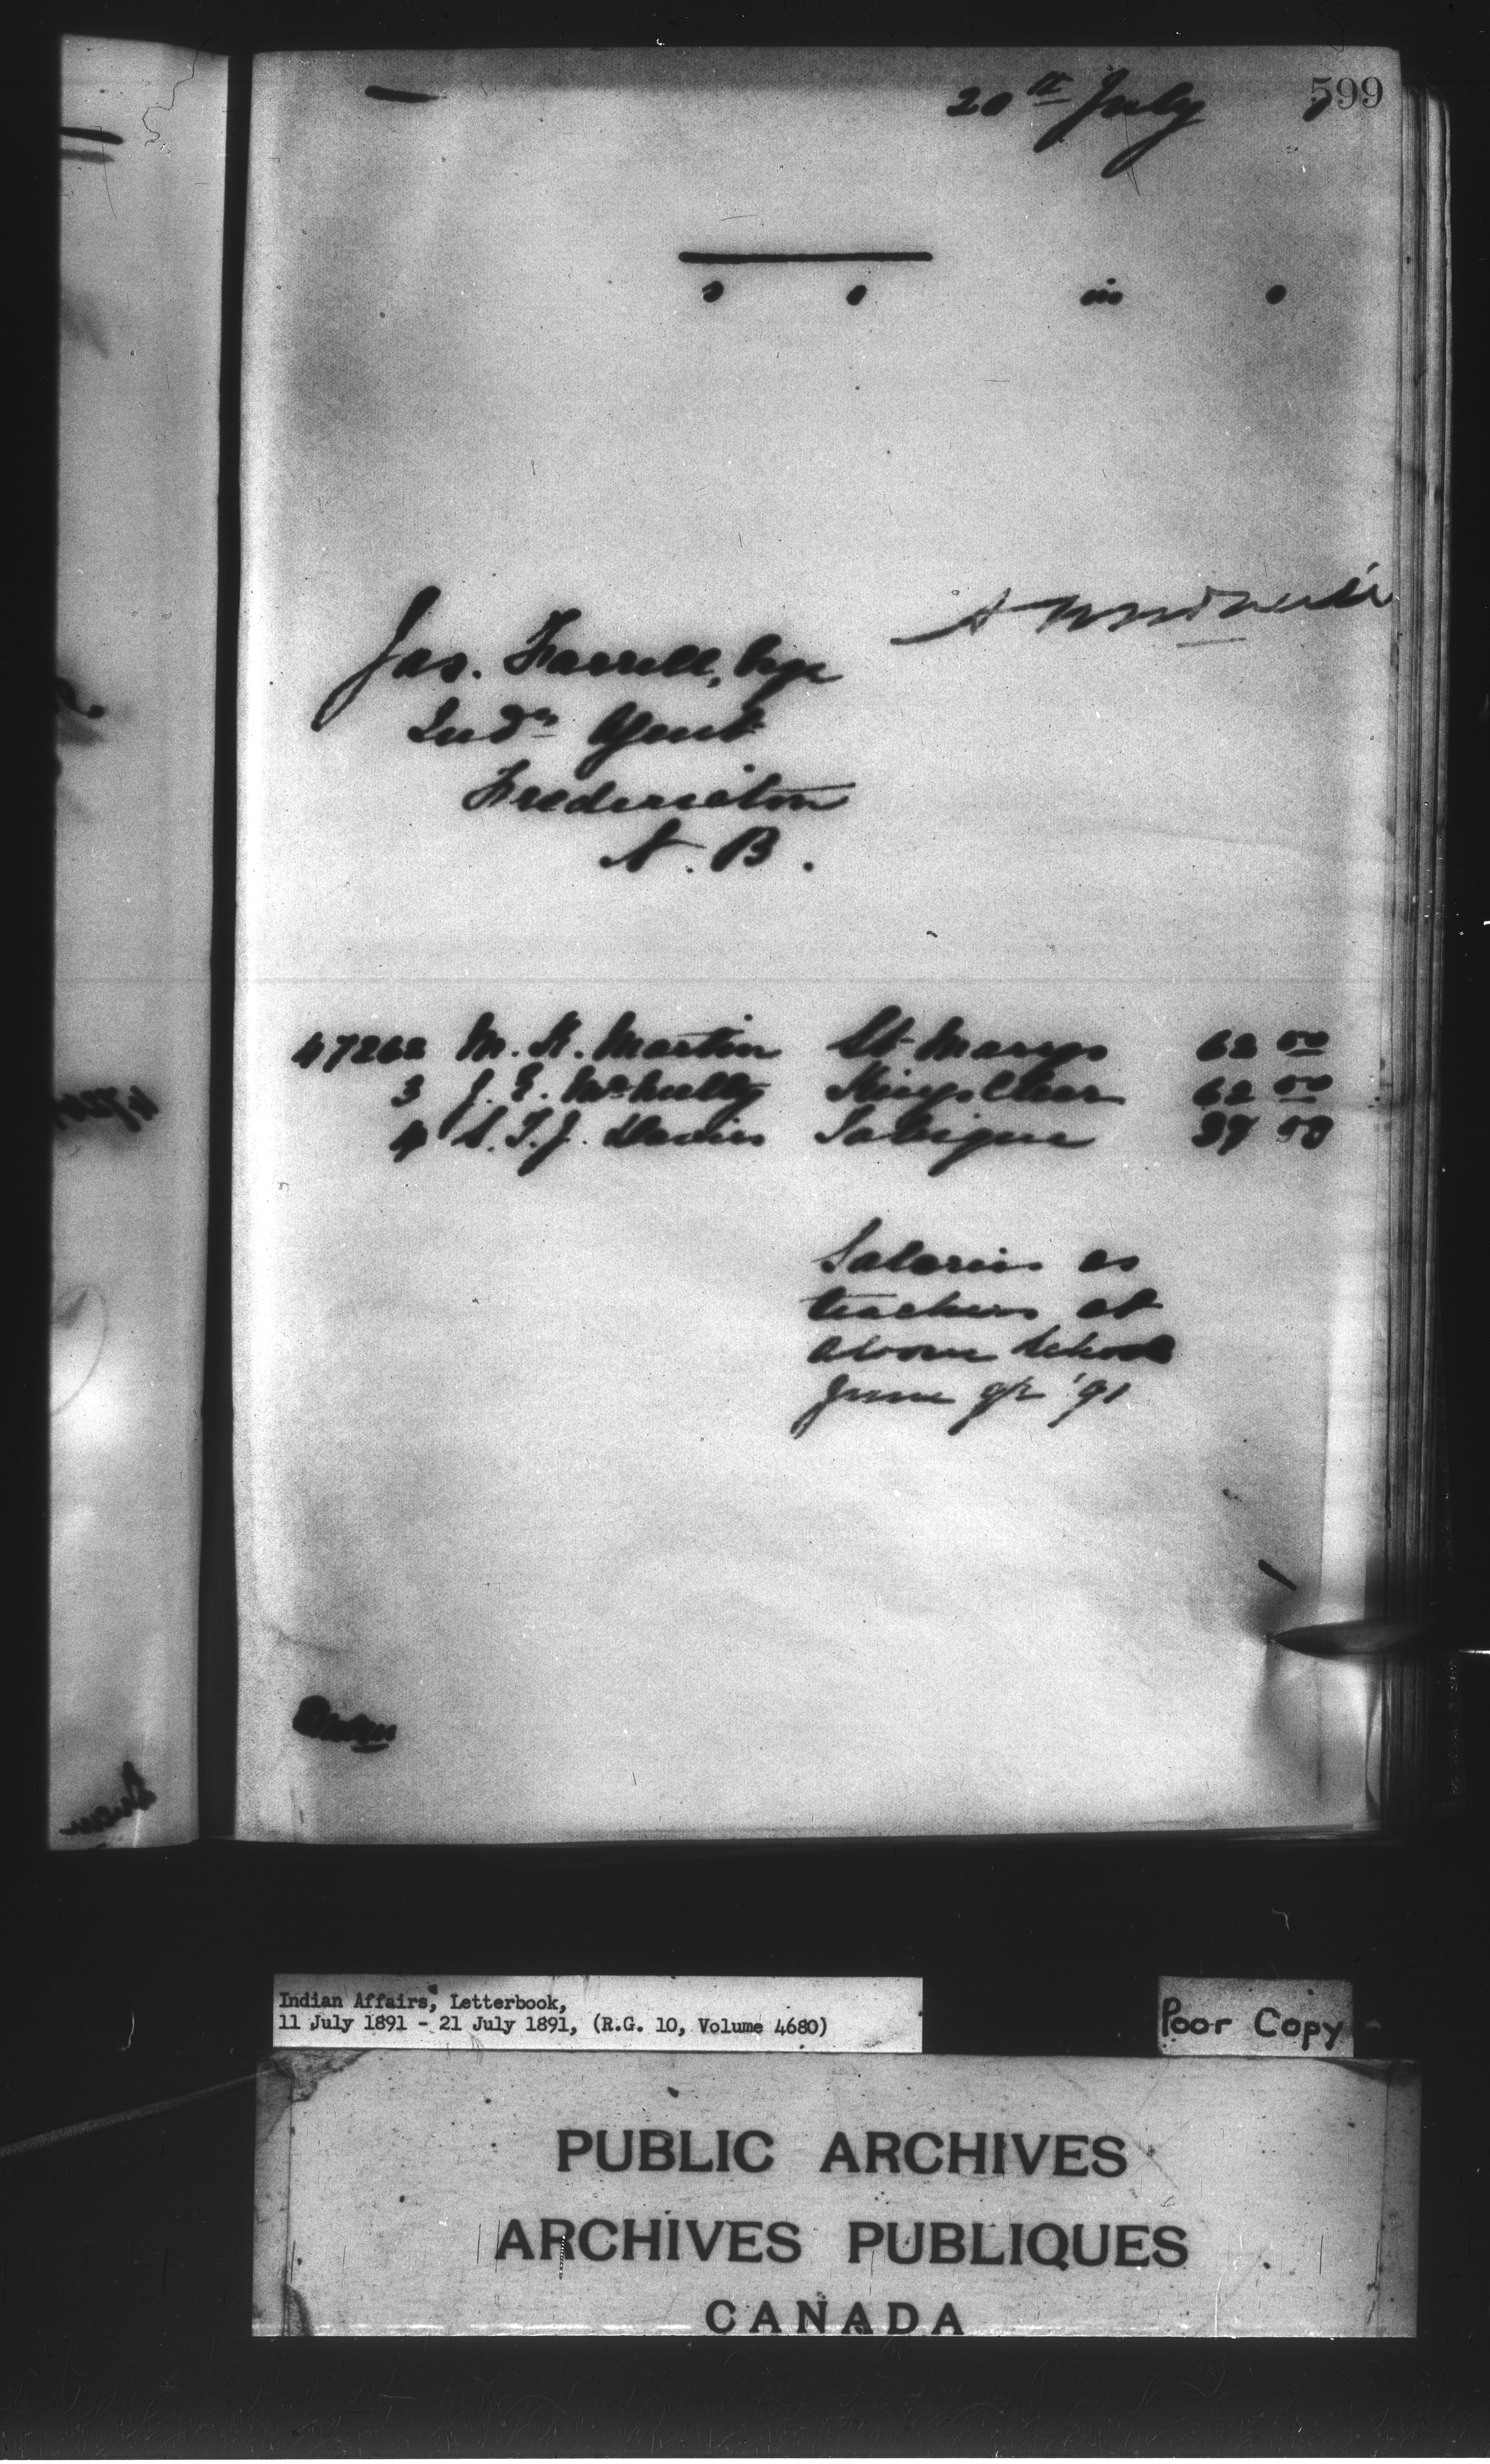 599
20th July 1
in
Jas. Farrell, Esqr
Indn Agent
Fredericton
N. B.
47262 M. H. Martin St. Marys 62 00
3 J. E. McNulty Kingsclear 62 00
4 S. T. J. Davies Tobique 37 50
Salaries as
teachers at
above School
June qr '91
Indian Affairs, Letterbook,
11 July 1891 - 21 July 1891, (R.G. 10, Volume 4680)
Poor Copy
PUBLIC ARCHIVES
ARCHIVES PUBLIQUES
CANADA